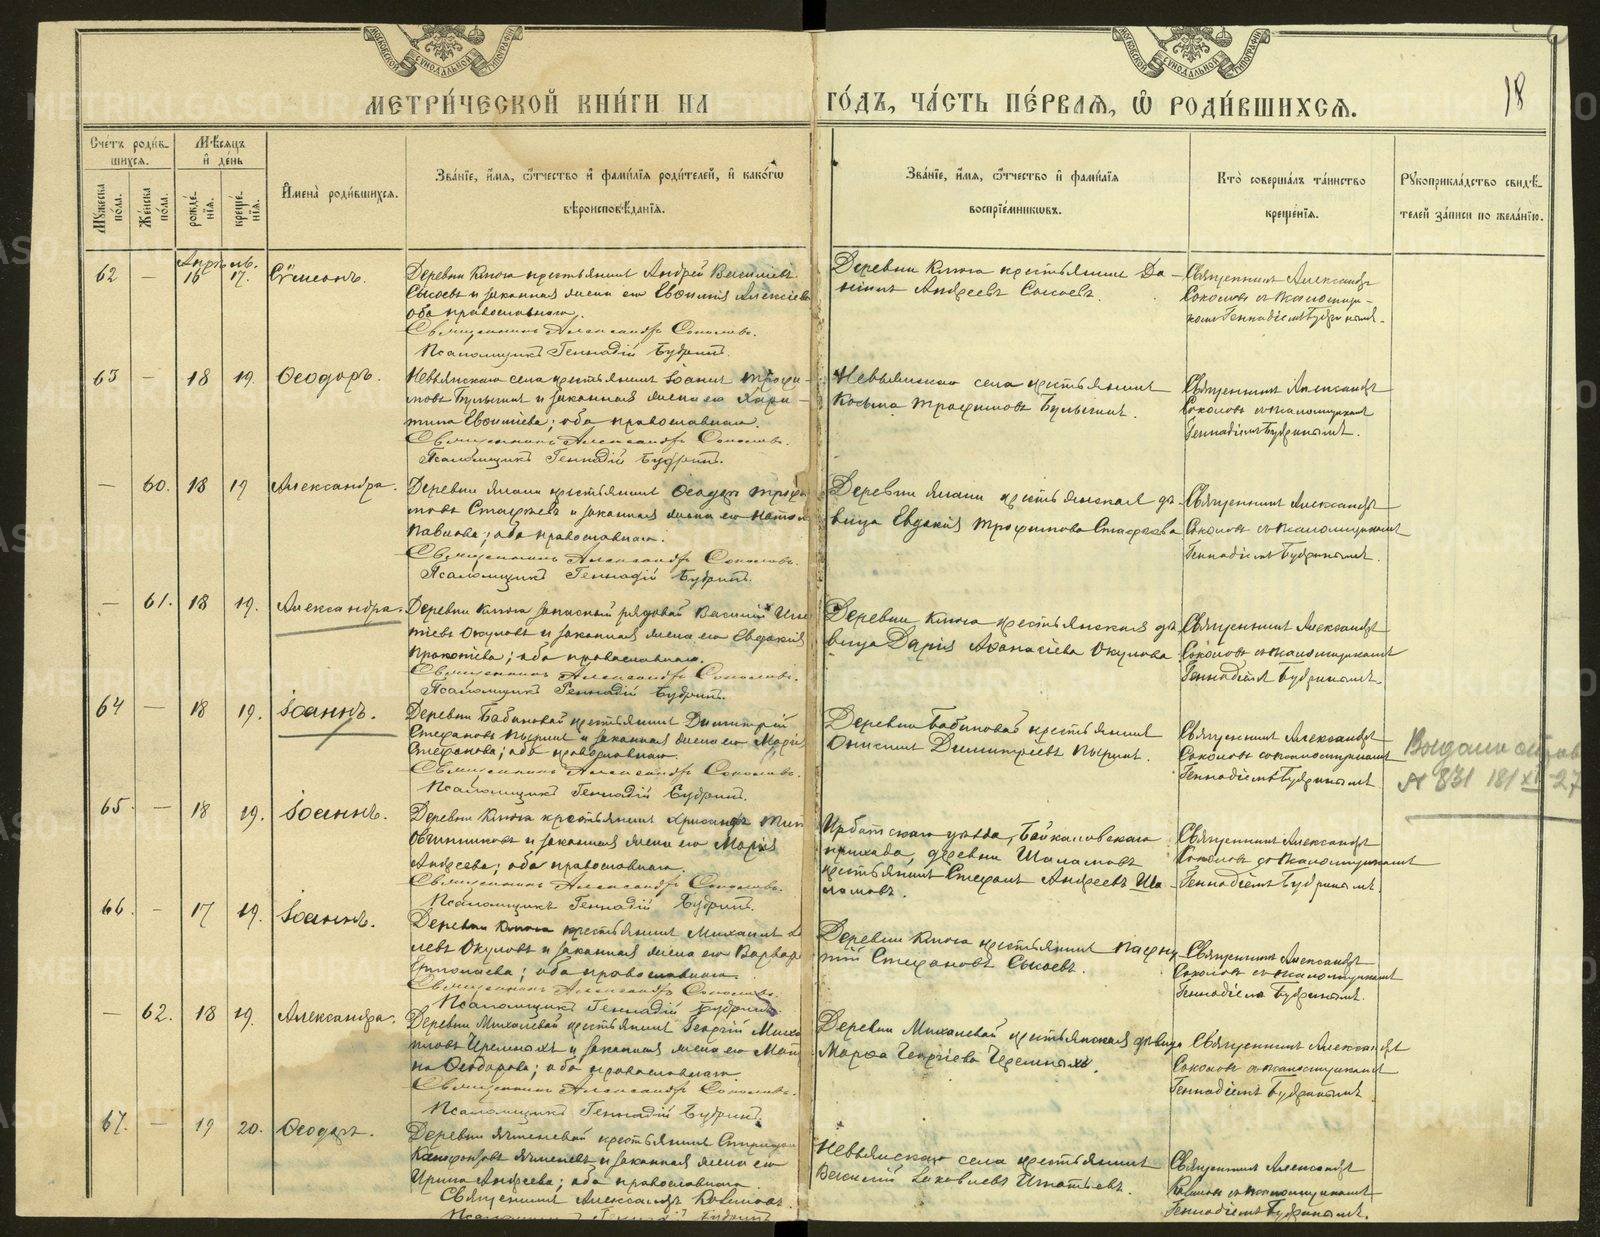 МОСКОВСКОЙ СѴНОДАЛЬНОЙ ТИПОГРАФІИ
МОСКОВСКОЙ СѴНОДАЛЬНОЙ ТИПОГРАФІИ
МЕТРИ́ЧЕСКОЙ КНИ́ГИ НА
ГО́ДЪ, ЧА́СТЬ ПЕ́РВАѦ, Ѡ҆ РОДИ́ВШИХСѦ.
18
Сче́тъ роди́в-
шихсѧ.
Мѣ́сѧцъ
и҆ де́нь
Мꙋ́жеска по́ла.
Же́нска по́ла.
рожде́-
нїѧ.
креще́-
нїѧ.
И҆мена̀ роди́вшихсѧ.
Зва́нїе, и҆́мѧ, ѻ҆́тчество и҆ фами́лїѧ роди́телей, и҆ како́гѡ
вѣроисповѣ́данїѧ.
Зва́нїе, и҆́мѧ, ѻ҆́тчество и҆ фами́лїѧ
воспрїе́мникѡвъ.
Кто̀ соверша́лъ та́инство
креще́нїѧ.
Рꙋкоприкла́дство свидѣ́-
телей за́писи по жела́нїю.
Апрель.
62 — 16 17. Сѵмеонъ.
Деревни Ключа крестьянинъ Андрей Васильевъ
Сысоевъ и законная жена его Евѳимія Алексіева
оба православные.
Священникъ Александръ Соколовъ.
Псаломщикъ Геннадій Будринъ.
Деревни Ключа крестьянинъ Да-
ніилъ Андреевъ Сысоевъ.
Священникъ Александръ
Соколовъ съ псаломщи-
комъ Геннадіемъ Будринымъ.
63 — 18 19. Ѳеодоръ.
Невьянскаго села крестьянинъ Іоаннъ Трофи-
мовъ Булыгинъ и законная жена его Хари-
тина Евѳиміева; оба православные.
Священникъ Александръ Соколовъ.
Псаломщикъ Геннадій Будринъ.
Невьянскаго села крестьянинъ
Косьма Трофимовъ Булыгинъ.
Священникъ Александръ
Соколовъ съ псаломщикомъ
Геннадіемъ Будринымъ.
— 60. 18 19 Александра.
крестьянинъ Ѳеодоръ Трофи
мовъ и законная жена его
Павлова; оба православные.
Священникъ Александръ Соколовъ.
Псаломщикъ Геннадій Будринъ.
крестьянская дѣ-
вица Евдокія Трофимова
Священникъ Александръ
Соколовъ съ псаломщикомъ
Геннадіемъ Будринымъ.
— 61. 18 19. Александра.
Деревни Ключа запасный рядовой Василій Игна
тіевъ Окуловъ и законная жена его Евдокія
Прокопіева; оба православные.
Священникъ Александръ Соколовъ.
Псаломщикъ Геннадій Будринъ.
Деревни Ключа крестьянская дѣ-
вица Дарія Аѳанасіева Окулова
Священникъ Александръ
Соколовъ съ псаломщикомъ
Геннадіемъ Будринымъ.
64 — 18 19. Іоаннъ.
Деревни Бабиновой крестьянинъ Димитрій
Стефановъ Пыринъ и законная жена его Марія
Стефанова; оба православные.
Священникъ Александръ Соколовъ.
Псаломщикъ Геннадій Будринъ.
Деревни Бабиновой крестьянинъ
Онисимъ Димитріевъ Пыринъ.
Священникъ Александръ
Соколовъ съ псаломщикомъ
Геннадіемъ Будринымъ
65 — 18 19. Іоаннъ.
Деревни Ключа крестьянинъ Хрисанфъ
Овчинниковъ и законная жена его Марія
Андреева; оба православные.
Священникъ Александръ Соколовъ.
Псаломщикъ Геннадій Будринъ.
Ирбитскаго уѣзда, Байкаловскаго
прихода, деревни Шаламовъ
крестьянинъ Стефанъ Андреевъ Ша-
ламовъ.
Священникъ Александръ
Соколовъ съ псаломщикомъ
Геннадіемъ Будринымъ.
66 — 17 19. Іоаннъ.
Деревни Ключа крестьянинъ Михаилъ
левъ Окуловъ и законная жена его Варвара
Ермолаева; оба православные.
Священникъ Александръ Соколовъ.
Псаломщикъ Геннадій Будринъ.
Деревни Ключа крестьянинъ Пафну
тій Стефановъ Сысоевъ.
Священникъ Александръ
Соколовъ съ псаломщикомъ
Геннадіемъ Будринымъ.
— 62. 18 19. Александра.
Деревни Михалевой крестьянинъ Георгій Миха
иловъ Черемныхъ и законная жена его
на Ѳеодорова; оба православные
Священникъ Александръ Соколовъ.
Псаломщикъ Геннадій Будринъ.
Деревни Михалевой крестьянская дѣвица
Марѳа Георгіева Черемныхъ.
Священникъ Александръ
Соколовъ съ псаломщикомъ
Геннадіемъ Будринымъ.
67. — 19 20. Ѳеодоръ.
Деревни Ячменевой крестьянинъ Спиридонъ
Ячменевъ и законная жена его
Ирина Андреева; оба православные
Священникъ Александръ Соколовъ.
Псаломщикъ Геннадій Будринъ
Невьянскаго села крестьянинъ
Василій Іаковлевъ Игнатьевъ.
Священникъ Александръ
Соколовъ съ псаломщикомъ
Геннадіемъ Будринымъ.